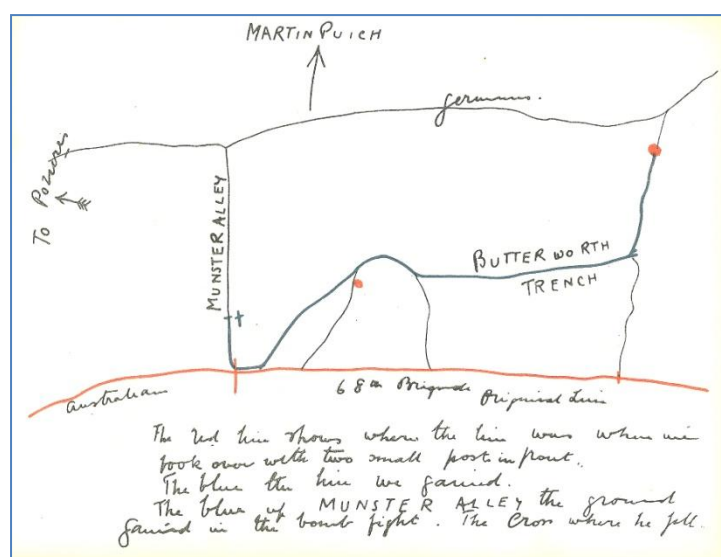 MARTINPUICH
germans.
To Pozières
MUNSTER ALLEY
BUTTERWORTH
TRENCH
Australian
68th Brigade Original Line
The red line shows where the line was when we
took over with two small post in front.
The blue the line we gained.
The blue up MUNSTER ALLEY the ground
gained in the bomb fight. The Cross where he fell.